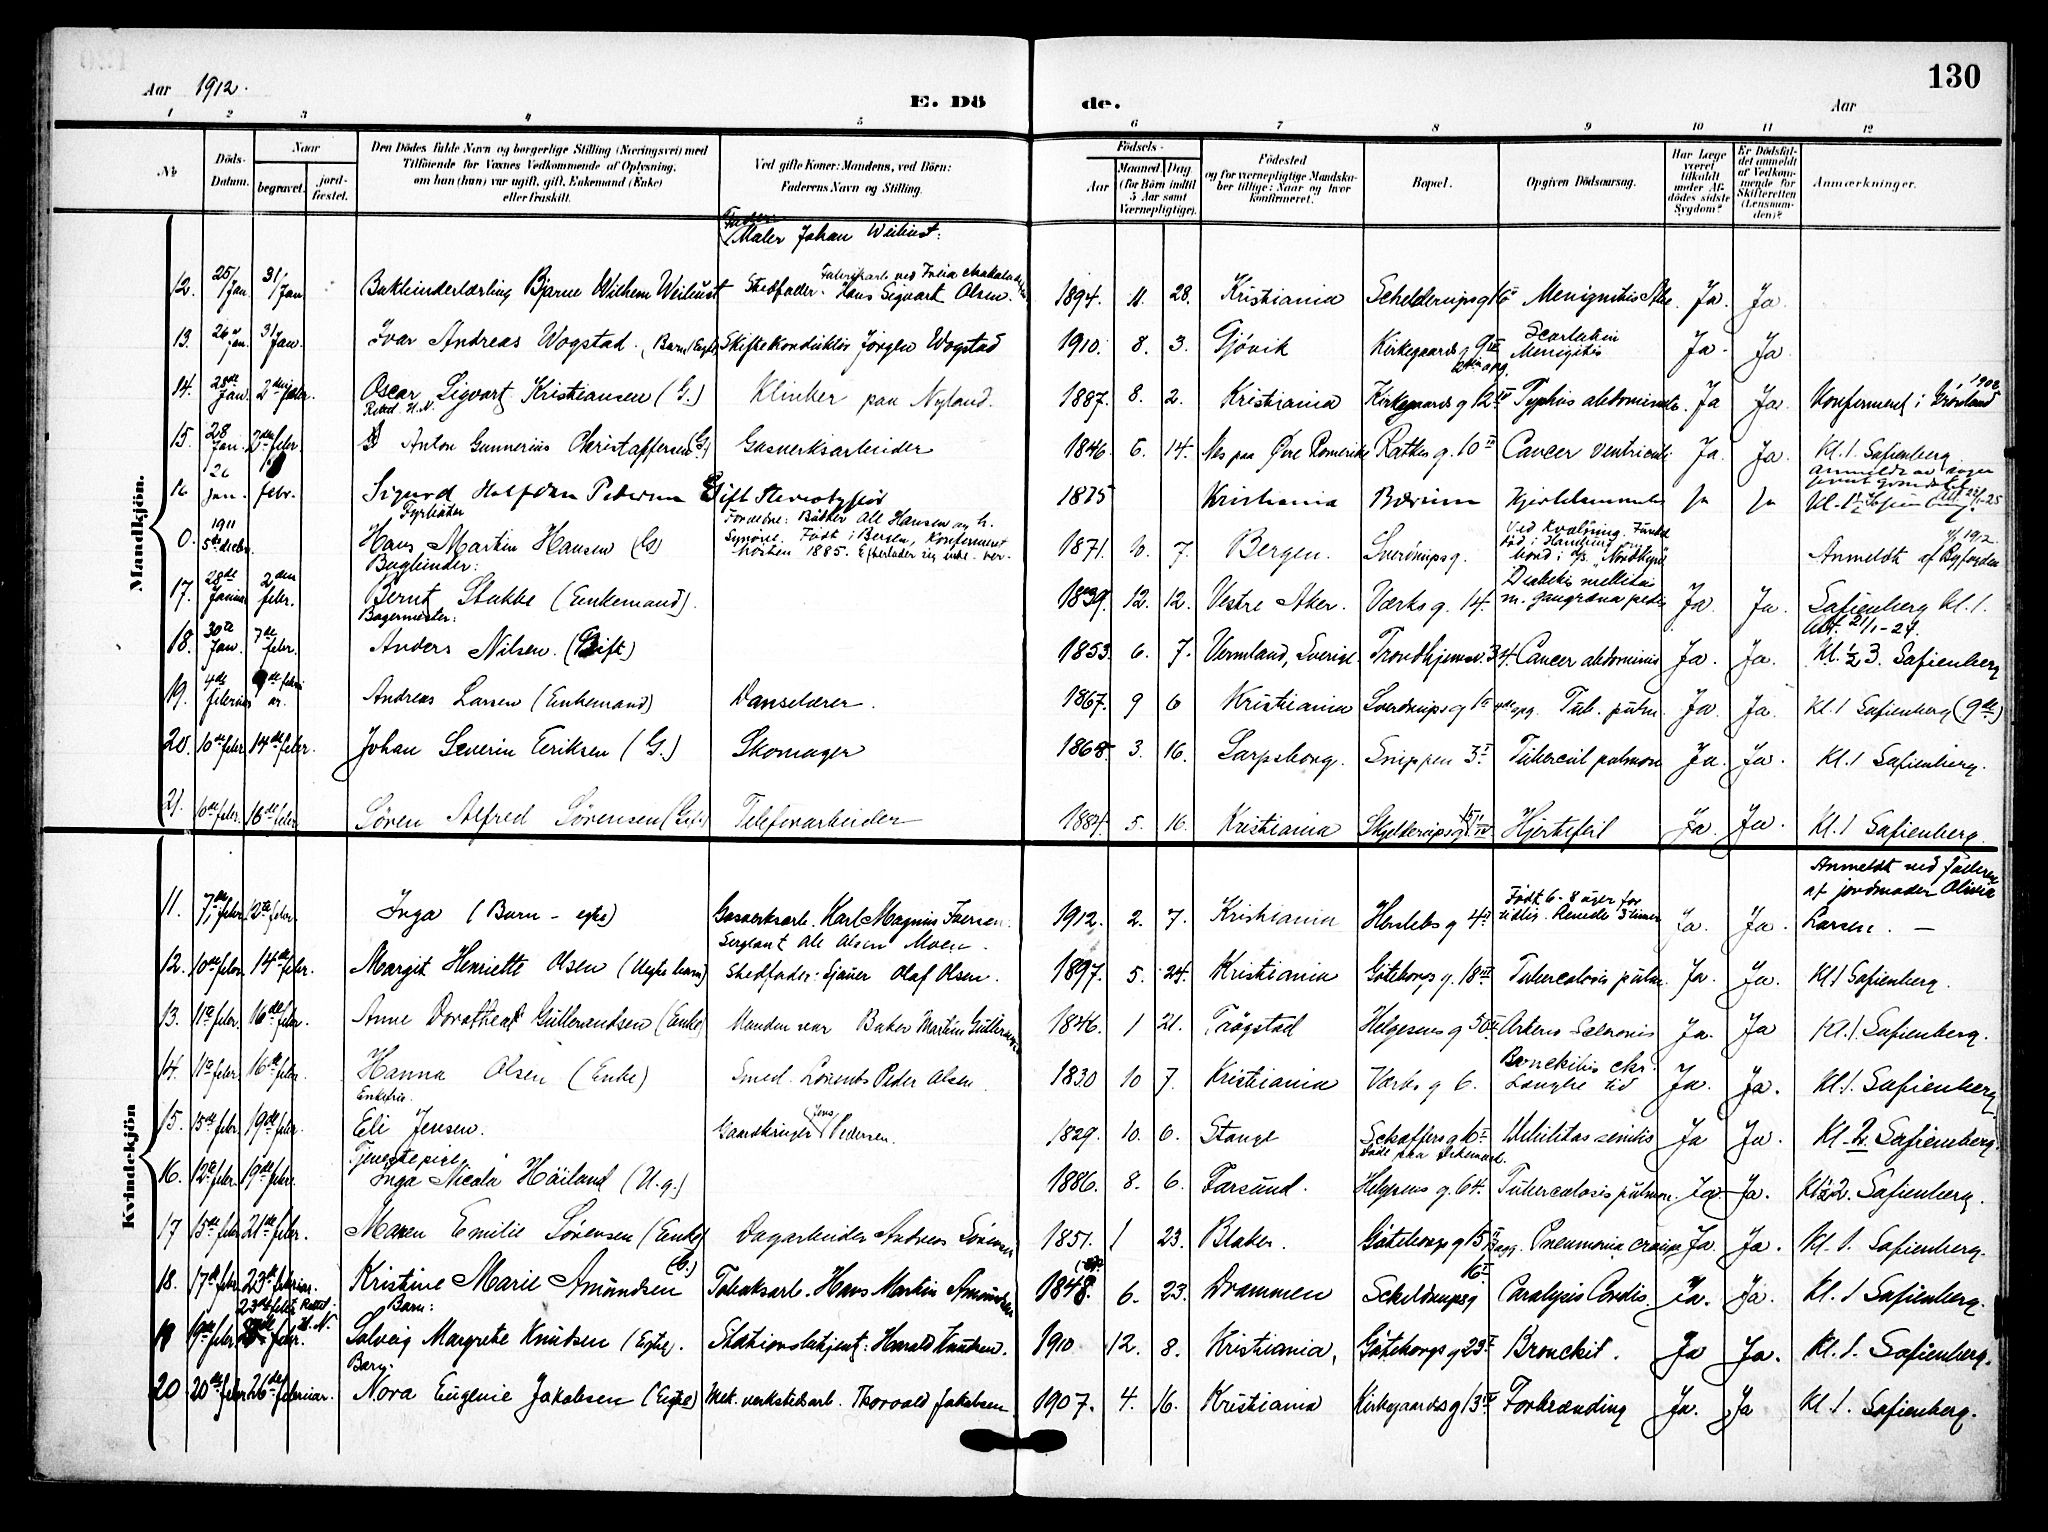 Aar 1912.
E. Dö
de.
Aar
130
1 2 3 4 5 6 7 8 9 10 11 12
No
Döds-Datum.
Naar
begravet.
jordfæstet.
Den Dödes fulde Navn og borgerlige Stilling (Næringsvei) med
Tilföiende for Voxnes Vedkommende af Oplysning,
om han (hun) var ugift, gift, Enkemand (Enke)
eller fraskilt.
Ved gifte Koner: Mandens, ved Börn:
Faderens Navn og Stilling.
Födsels-
Aar
Maaned Dag
(for Börn indtil
5 Aar samt
Værnepligtige).
Födested
og for værnepligtige Mandskaber tillige: Naar og hvor
konfirmeret.
Bopæl.
Opgiven Dödsaarsag.
Har Læge
været
tilkaldt
under Afdödes sidste
Sygdom?
Er Dödsfaldet anmeldt
af Vedkommende for
Skifteretten
(Lensmanden)?
Anmærkninger.
Mandkjön.
Maler Johan Weiliust:
12. 25/Jan 31/Jan Bokbinderlærling Bjarne Wilhem Weiliust Stedfader. Hans Sigvart Olsen. 1894. 11. 28. Kristiania Ja. Ja.
13. 26 Jan. 31 Jan. Ivar Andreas Wogstad. (Barn Egte) Skiftekonduktör Jørgen Wogstad 1910. 8. 3. Gjövik Kirkegaards g 9 IV Scarlatin Menigitis Ja. Ja
14. 28de Jan. Oscar Sigvart Kristiansen (G.) Klinker paa Nyland. 1887. 8. 2. Kristiania Kirkegaards g 12 IV Typhus abdominalis. Ja Ja Konfirmeret i Grönland 1902
15. 28 Jan. 2den febr. Anton Gunnerius Christoffersen (G.) Gasverksarbeider 1846. 6. 14. Nes paa Øvre Romerike Rathkes g. 10 II Cancer ventriculi. Ja Ja. Kl. 1. Safienberg
16 26 Jan. febr. Sigurd Halfdan Pedersen Gift Stereotypör 1875 Kristiania Bærum Ja Ja
0. 1911 5te decbr. Fyrböter Hans Martin Hansen (G) Födt i Bergen, Konfirmeret hösten 1885. 1871. 10. 7. Bergen. Sverdrups g. Anmeldt af Byfogden 1912
17. 28de Januar 2den febr. Bogbinder: Bernt Stubbe (Enkemand). 1839. 12. 12. Vestre Aker. Værks g. 14. Diabetis mellitus m. gangræna pedis Ja. Ja. Safienberg Kl. 1.
18. 30te Jan. 7de febr. Bagermester: Anders Nilsen. (Gift) 1853. 6. 7. Vermland, Sverige. Trondhjemsv. 34. Cancer abdominis Ja. Ja. Kl. 3. Safienberg
19. 4de februar 9de februar. Andreas Larsen (Enkemand) Danselærer. 1867. 9 6 Kristiania Sverdrups g 1 II Tub. pulm. Ja. Ja. Kl. 1 Safienberg (9de)
20. 10de febr 14de febr. Johan Severin Eriksen (G.) Skomager 1868. 3. 16. Sarpsborg. Snippen 3 I. Tubercul pulmon Ja. Ja. Kl. 1 Safienberg.
21. 10de febr. 16de febr. Sören Alfred Sörensen (Gift) Telefonarbeider 1884. 5. 16. Kristiania Hjertefeil Ja. Ja. Kl. 1 Safienberg.
Kvindekjön
11. 7de febr 12te febr. Inga (Barn - egte) Gasverksarb. Karl Magnus Iversen. 1912. 2. 7. Kristiania Herslebs g 4 II Födt 6-8 uger for tidlig. Levede 3 timer Ja. Ja. Anmeldt ved Faderen af jordmoder Olivia Larsen. —
12. 10de febr 14de febr. Margit Henriette Olsen (Uegte barn) Sergeant Ole Olsen Moen. Stedfader: Sjauer Olaf Olsen. 1897. 5. 24. Kristiania Göteborgs g. 18 III Tuberculosis pulm. Ja. Ja. Kl 1 Safienberg.
13. 11te febr. 16de febr. Anne Dorothea Gulbrandsen (Enke) Manden var Baker Martin Gulbrandsen 1846. 1 21. Trögstad Helgesens g Arterio Sclerosis Ja. Ja Kl. 1. Safienberg.
14. 11te febr. 16de febr. Hanna Olsen (Enke) Smed. Lorents Peder Olsen. 1830 10 7. Kristiania Værks g 6. Bronchitis chr. Længre tid Ja. Ja. Kl. 1. Safienberg
15. 15de febr. 19de febr. Enkefru. Eli Jensen. Gaardbruger Jens Pedersen. 1829. 10. 6. Stange Debilitas senilis Ja Ja. Kl. 2. Safienberg.
16. 12te febr. 19de febr. Tjenestepige Inga Nicola Höiland (U.g.) 1886. 8. 6. Farsund. Helgesens g. 64. Tuberculosis pulmon. Ja Ja. Kl 2. Safienberg.
17 15de febr 21de febr. Maren Emilie Sörensen (Enke) Dagarbeider Andreas Sörensen 1851. 1 23. Blaker. Göteborgs g 15 Pneumonia croup. Ja Ja. Kl. 1. Safienberg.
18. 17de febr. 23de februar. Kristine Marie Amundsen (G.) Tobaksarb. Hans Martin Amundsen 1848. 6. 23. Drammen Paralysis Cordis. Ja. Ja. Kl. 1 Safienberg.
19 19de febr 23de febr. Rettet: H.N. Barn: Solveig Margrete Knudsen (Egte). Stationsbetjent: Harald Knudsen. 1910 12. 8. Kristiania, Göteborgs g 23 I Bronchit. Ja Ja. Kl. 1. Safienberg.
20 20de febr 26de februar. Barn: Nora Eugenie Jakobsen (Egte) Mek. verkstedsarb. Thorvald Jakobsen 1907. 4. 16. Kristiania Kirkegaards g 13 IV Forbrænding Ja. Ja Kl. 1. Safienberg.